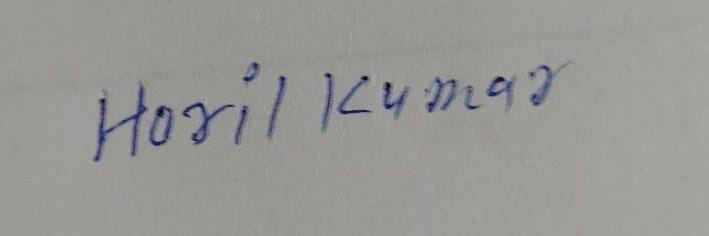 Horil Kumar